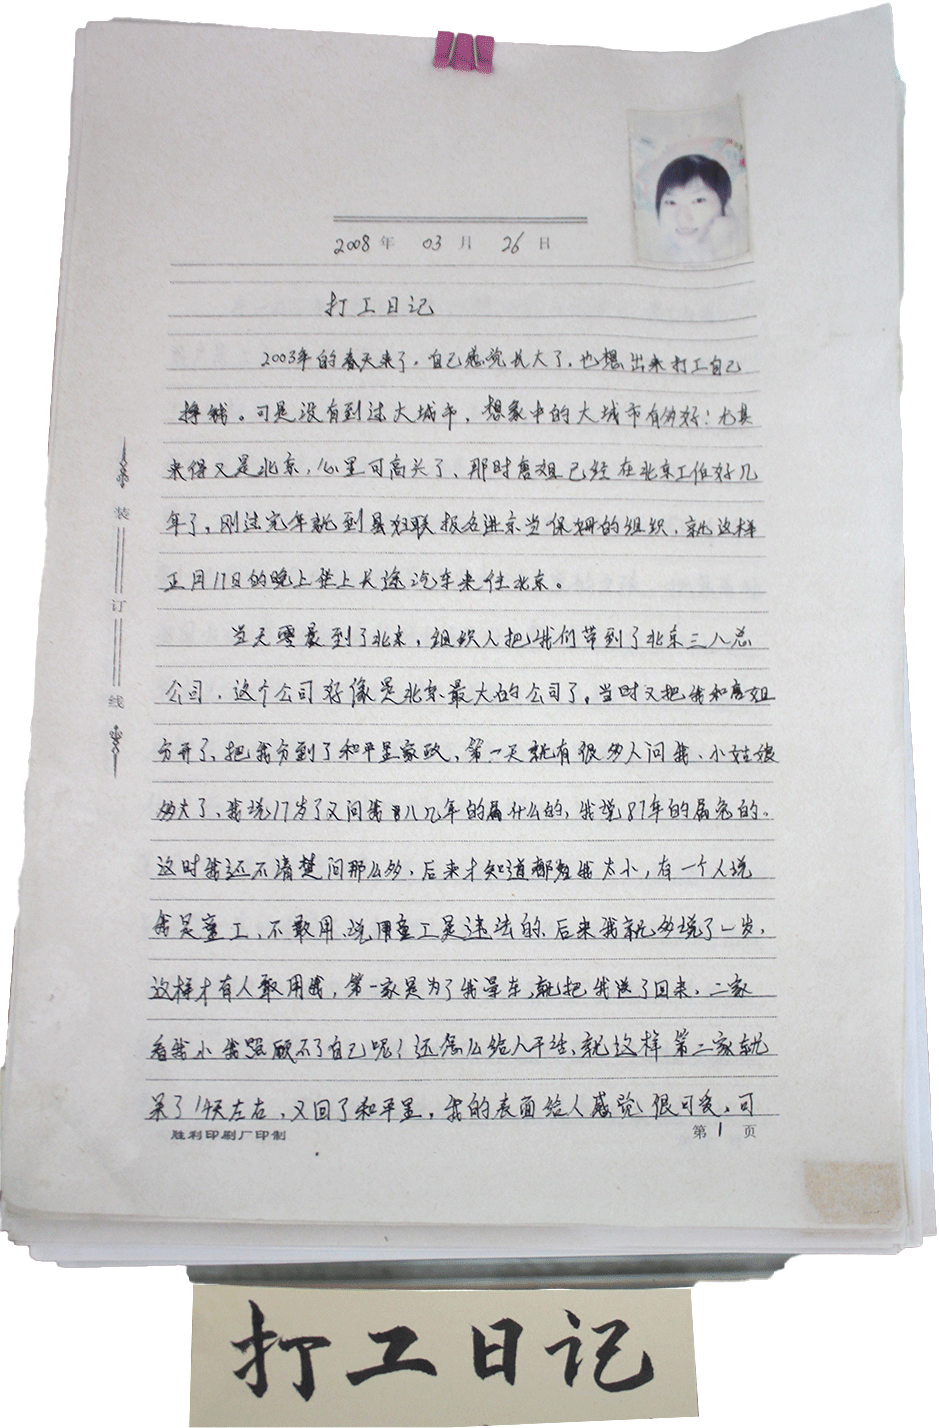 2008年 03月 26日
打工日记
2003年的春天来了，自己感觉长大了，也想出来打工自己
挣钱。可是没有到过大城市，想象中的大城市有多好！尤其
来得又是北京，心里可高兴了、那时唐姐已经在北京工作好几
年了，刚过完年就到县妇联报名进京当保姆的组织，就这样
正月17日的晚上坐上长途汽车来往北京。
当天零晨到了北京，组织人把我们带到了北京三八总
公司，这个公司好像是北京最大的公司了。当时又把我和唐姐
分开了、把我分到了和平里家政、第一天就有很多人问我、小姑娘
多大了、我说17岁了又问我八几年的属什么的，我说87年的属兔的。
这时我还不清楚问那么多，后来才知道都嫌我太小，有一个人说
我是童工、不敢用、说用童工是违法的、后来我就多说了一岁，
这样才有人敢用我，第一家是为了我晕车，就把我送了回来，二家
看我小我照顾不了自己呢？还怎么给人干活、就这样第二家就
呆了1天左右，又回了和平里，我的表面给人感觉很可爱，可
装
订
线
胜利印刷厂印制
第1页
打工日记